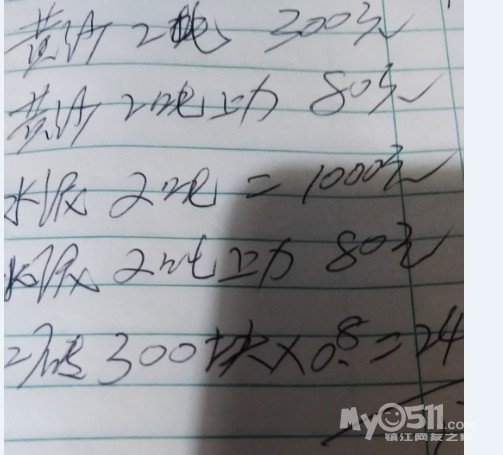 黄沙 2吨 300元
黄沙 2吨上力 80元
水泥 2吨 = 1000元
水泥 2吨上力 80元
二砖 300块×0.8=24
My0511.com
镇江网友之家